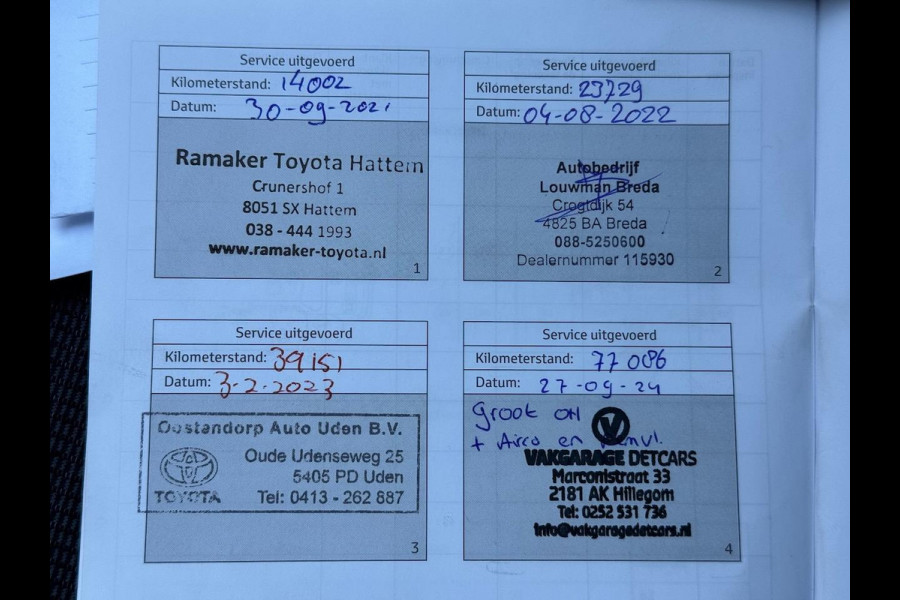 Service uitgevoerd
Kilometerstand: 14002
Datum: 30-09-2021
Ramaker Toyota Hattem
Crunershof 1
8051 SX Hattem
038 - 444 1993
www.ramaker-toyota.nl
1
Service uitgevoerd
Kilometerstand: 23729
Datum: 04-08-2022
Autobedrijf
Louwman Breda
Crogtdijk 54
4825 BA Breda
088-5250600
Dealernummer 115930
2
Service uitgevoerd
Kilometerstand: 39151
Datum: 3-2-2023
Oostendorp Auto Uden B.V.
Oude Udenseweg 25
5405 PD Uden
TOYOTA Tel: 0413 - 262 887
3
Service uitgevoerd
Kilometerstand: 77086
Datum: 27-09-24
Groot OH
+ Airco en Remvl.
V
VAKGARAGE DETCARS
Marconistraat 33
2181 AK Hillegom
Tel: 0252 531 736
info@vakgaragedetcars.nl
4